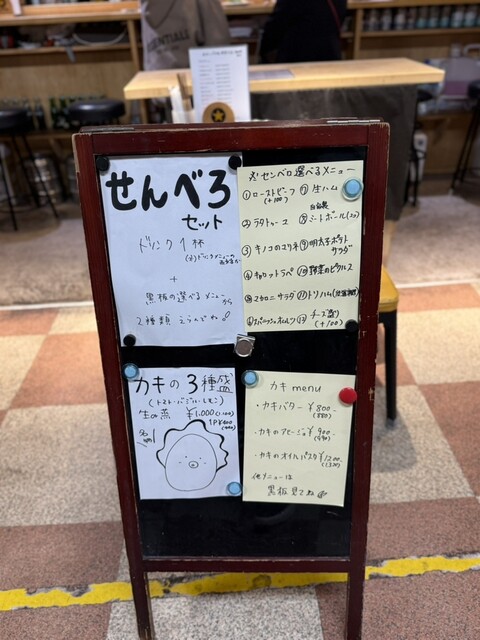 せんべろ
セット
ドリンク1杯
+
黒板の選べるメニューから
2種類えらんでね!
センベロ選べるメニュー
①ローストビーフ
(+100)
② ラタトゥーユ
③ キノコのマリネ
④ キャロットラペ
⑤ マカロニサラダ
⑦ 生ハム
自家製
⑧ ミートボール(2コ)
⑨ 明太子ポテト
サラダ
⑩ 野菜のピクルス
⑪ トリハム
チーズ盛り
(+100)
カキの3種盛
(トマト・バジル・レモン)
生 or 蒸 ¥1,000
1P¥400
カキ menu
・カキバター ¥800-
(880)
・カキのアヒージョ ¥900-
(990)
・カキのオイルパスタ ¥1200-
(1,320)
他メニューは
黒板見てね